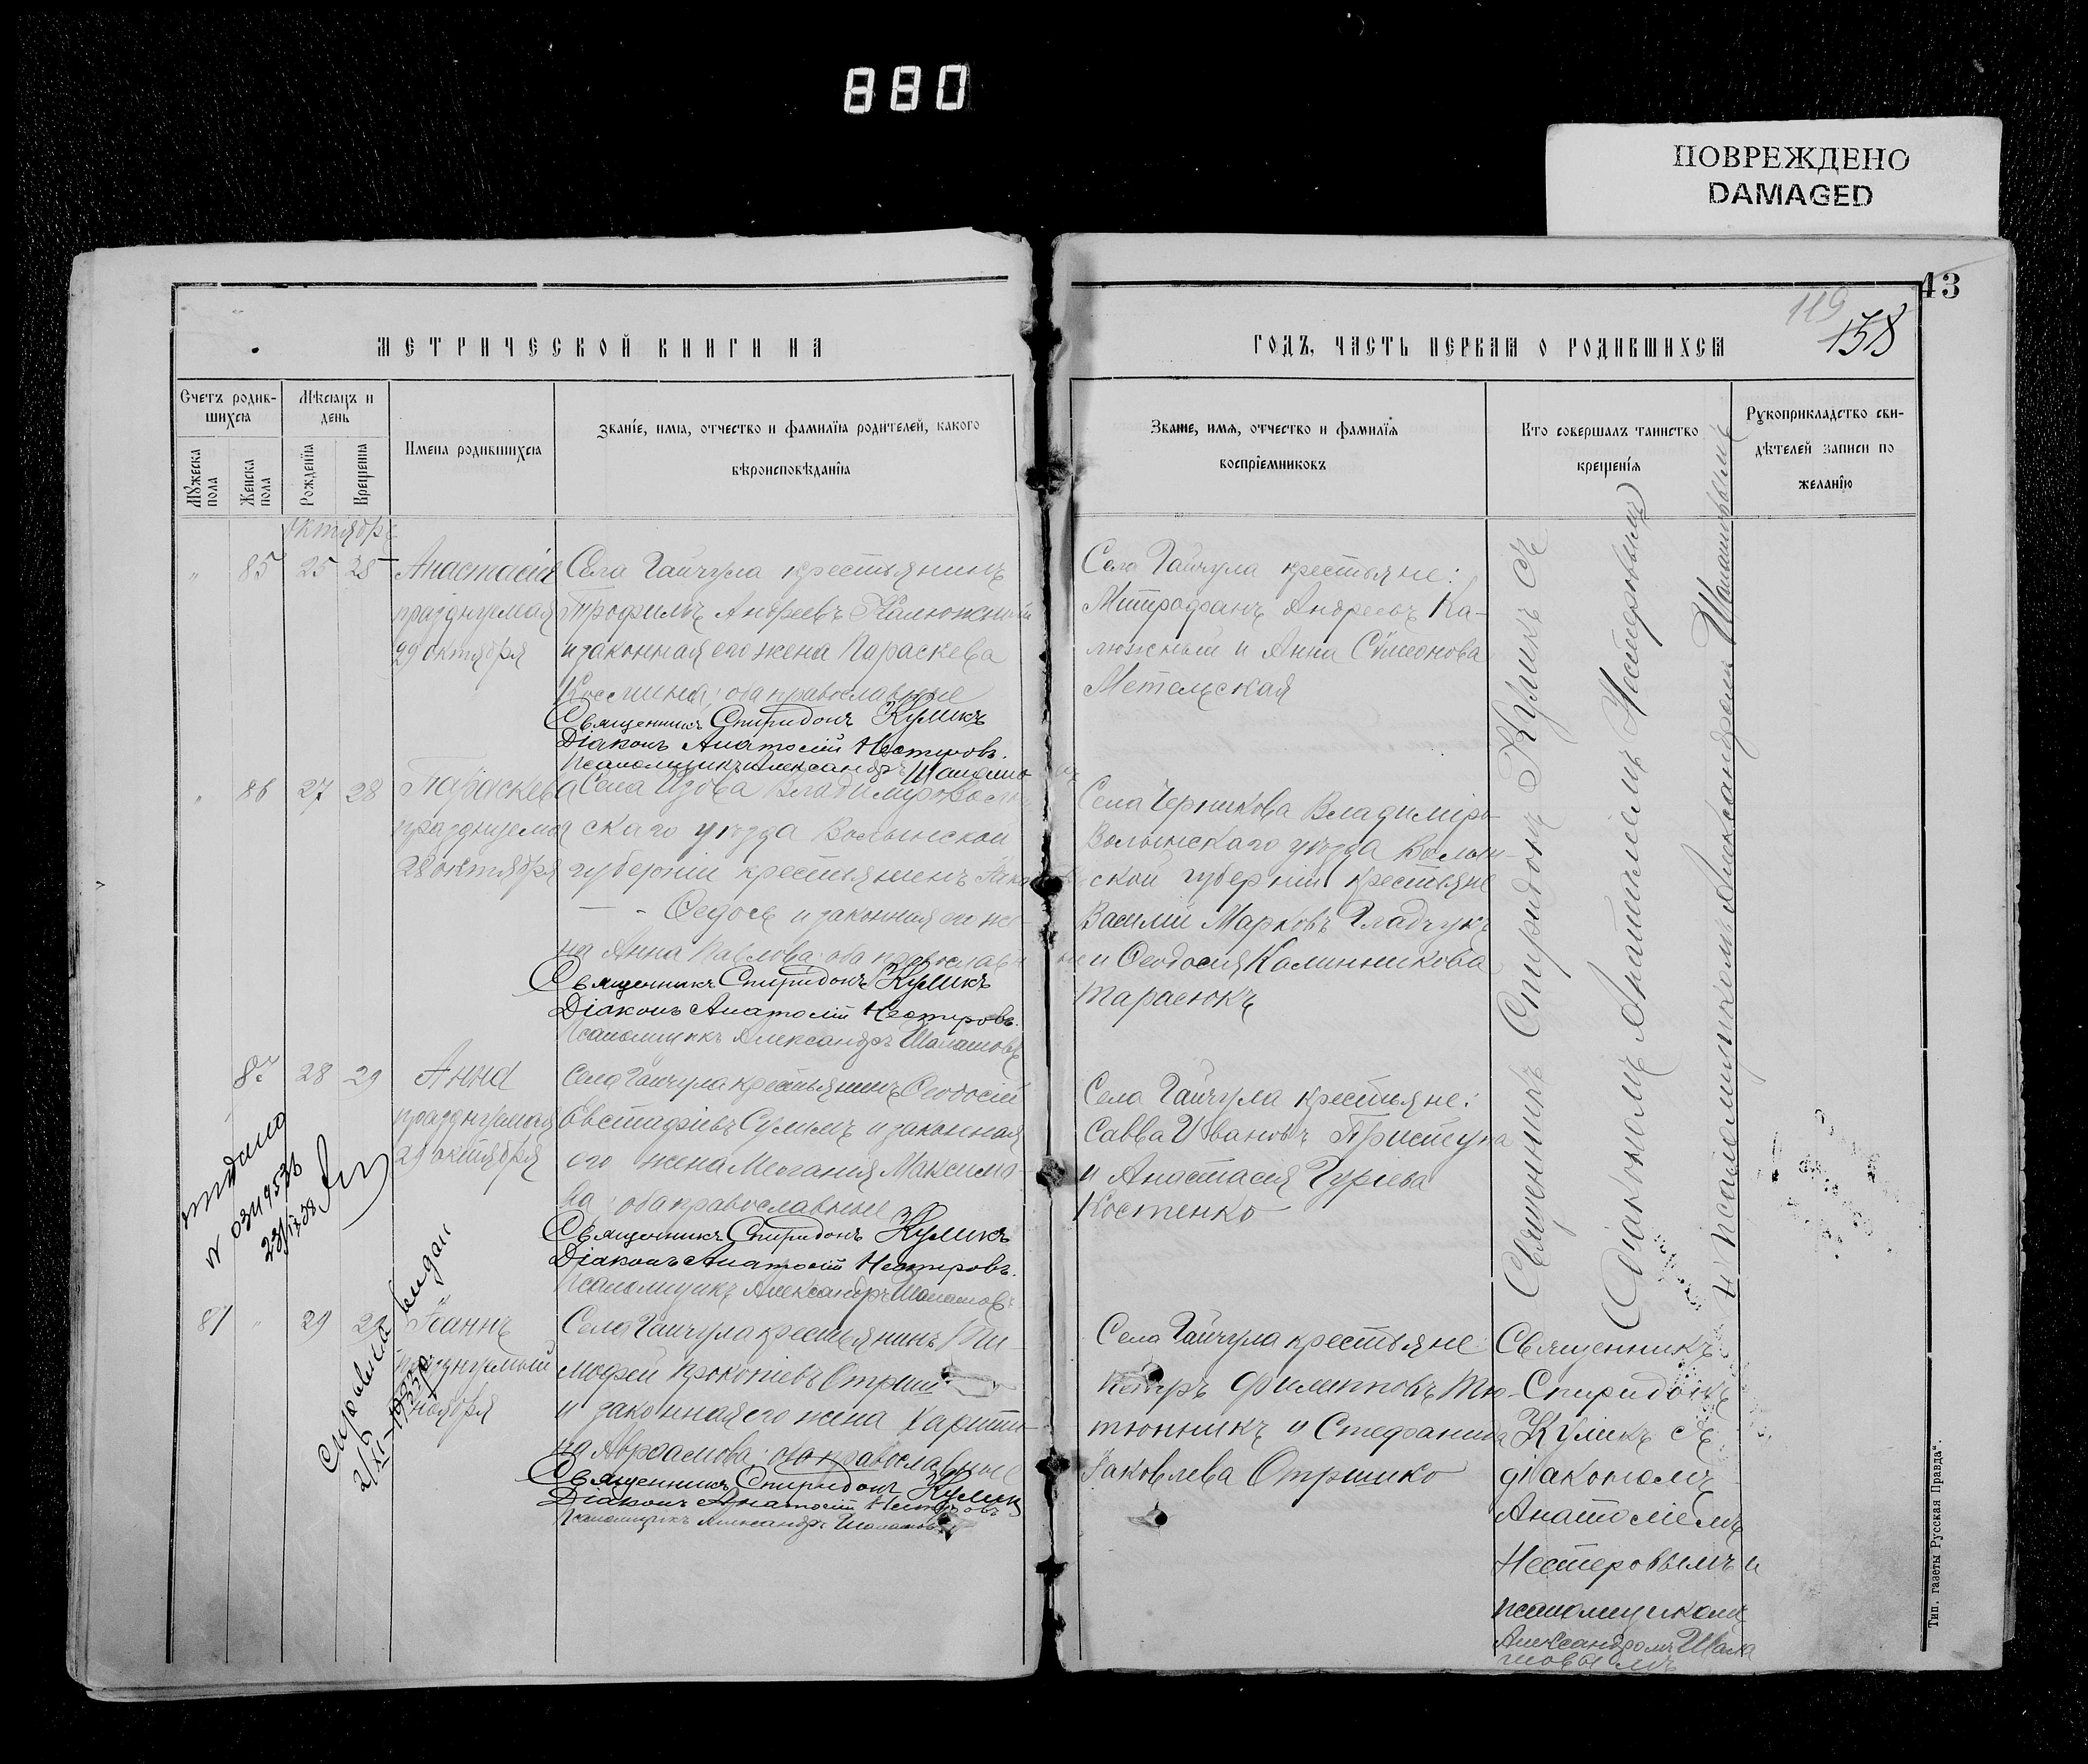 880
ПОВРЕЖДЕНО
DAMAGED
43
119
158
МЕТРИЧЕСКОЙ КНИГИ НА
ГОДЪ, ЧАСТЬ ПЕРВАЯ О РОДИВШИХСЯ
Счетъ родив-
шихся
Мѣсяцъ и
день
Мужеска
пола
Женска
пола
Рожденія
Крещенія
Имена родившихся
Званіе, имя, отчество и фамилія родителей, какого
вѣроисповѣданія
Званіе, имя, отчество и фамилія
воспріемниковъ
Кто совершалъ таинство
крещенія
Рукоприкладство сви-
дѣтелей записи по
желанію
октябрь
" 85 25 25 Анастасія
празднуемая
29 октября
Села Гайчула крестьянинъ
Трофимъ Андреевъ Калюжный
и законная его жена Параскева
Космина; оба православные
Священникъ Спиридонъ Куликъ
Діаконъ Анатолій Нестеровъ.
Псаломщикъ Александръ
Села Гайчула крестьяне:
Митрофанъ Андреевъ Ка-
люжный и Анна Сѵмеонова
Метельская
" 86 27 28 Параскева
празднуемая
28 октября
Села Изова Владиміроволын
скаго уѣзда Волынской
губерніи крестьянинъ
Федось и законная его же-
на Анна Павлова; оба православные
Священникъ Спиридонъ Куликъ
Діаконъ Анатолій Нестеровъ.
Псаломщикъ Александръ Шаламовъ
Села Черникова Владиміро-
Волынскаго уѣзда Волын-
ской губерніи крестьяне
Василій Марковъ Гладчукъ
и Феодосія Калинникова
Тарасюкъ
28 29 Анна
празднуемая
29 октября
Села Гайчула крестьянинъ Феодосій
Евстафіевъ Сулимъ и законная
его жена Меланія Максимо-
ва; оба православные
Священникъ Спиридонъ Куликъ
Діаконъ Анатолій Нестеровъ.
Псаломщикъ Александръ Шаламовъ
Села Гайчула крестьяне:
Савва Ивановъ Приступа
и Анастасія Гуріева
Костенко
81 " 29 29 Іоаннъ
празднуемый
ноября
Села Гайчула крестьянинъ Ти-
мофей Прокопіевъ
и законная его жена Харити-
на Авраамова; оба православные
Священникъ Спиридонъ Куликъ
Діаконъ Анатолій Нестеровъ
Псаломщикъ Александръ Шаламовъ
Села Гайчула крестьяне
Петръ Филипповъ Тю-
тюнникъ и Стефанида
Іаковлева Отришко
Священникъ Спиридонъ Куликъ съ
Діакономъ Анатоліемъ Нестеровымъ
и псаломщикомъ Александромъ Шаламовымъ
Священникъ
Спиридонъ
Куликъ съ
діакономъ
Анатоліемъ
Нестеровымъ и
псаломщикомъ
Александромъ Шала
мовымъ
Тип. газеты Русская Правда".